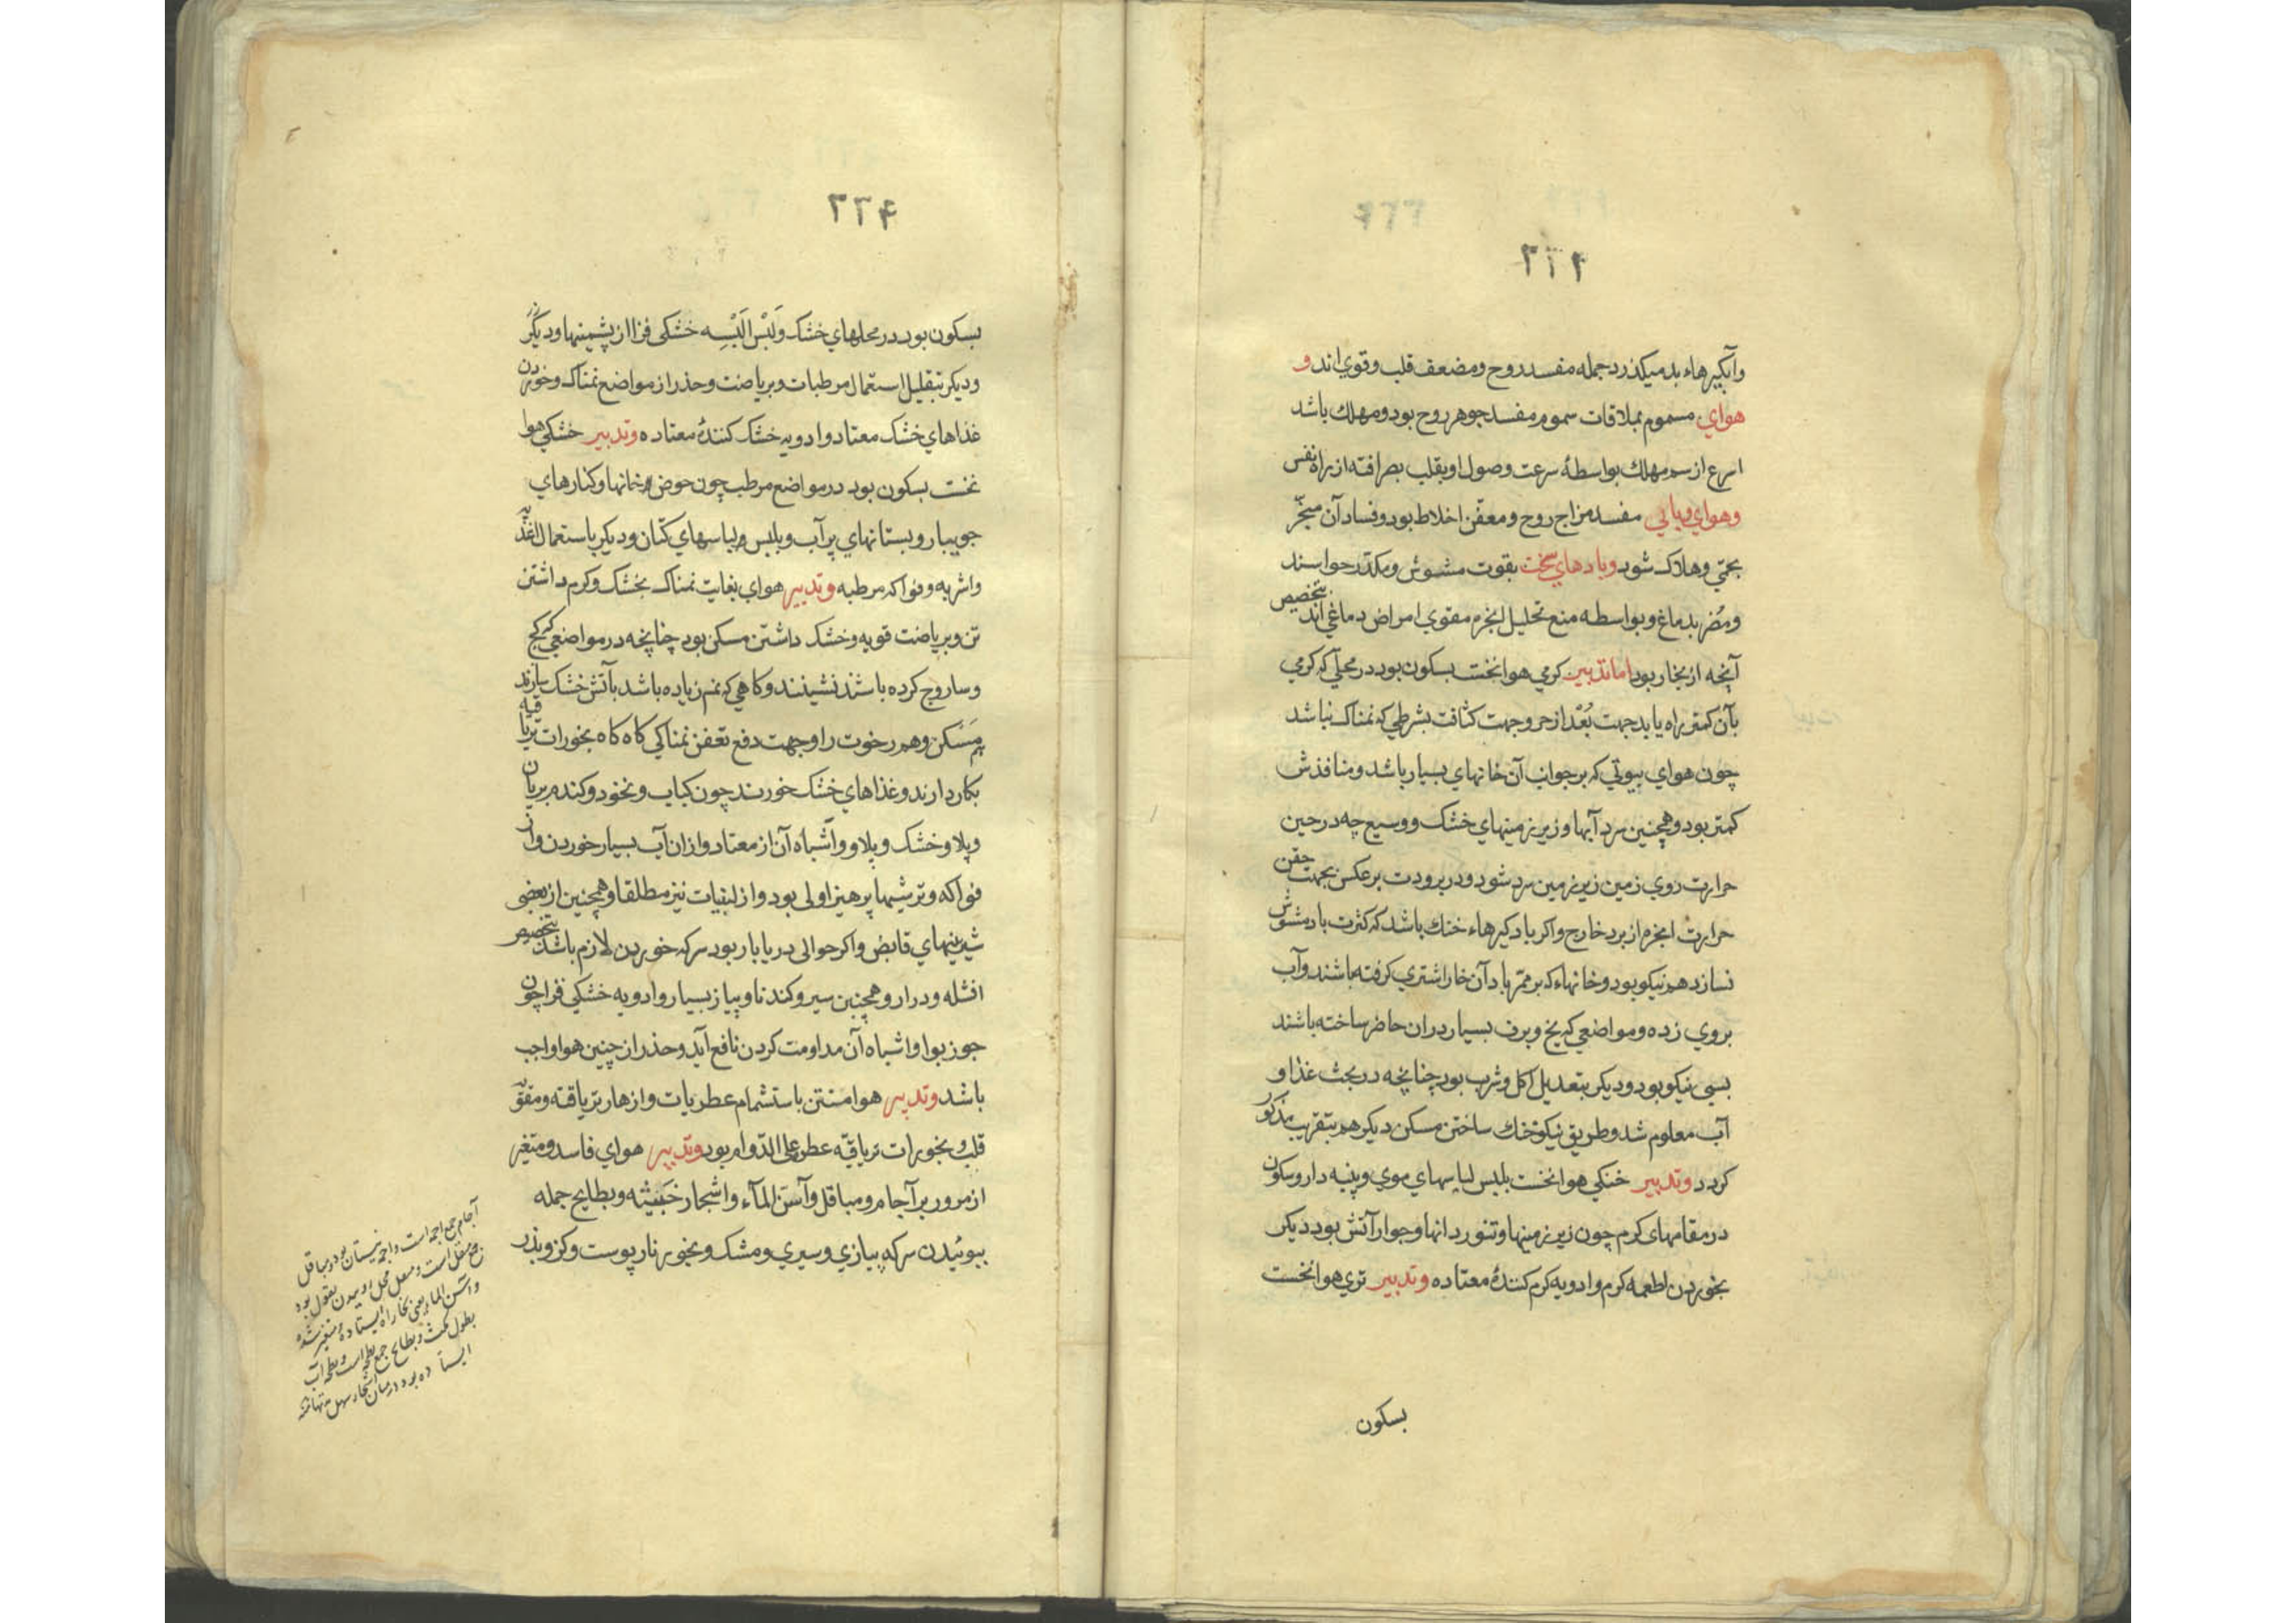 وآبگیرهاء بد میکذرد جمله مفسد روح ومضعف قلب وقوي اند و
هواي مسموم بملاقات سموم مفسد جوهر روح بود ومهلك باشد
اسرع از سم مهلك بواسطهٔ سرعت وصول او بقلب بصرافته از راه نفس
وهواي وبايي مفسد مزاج روح ومعفّن اخلاط بود وفساد آن منجّر
بحمّي وهلاک شود وبادهاي سخت بقوت مشوش ومکدّر حواسند
ومُضر بدماغ وبواسطه منع تحلیل ابخره مقوي امراض دماغي اند بتخصیص
آنچه از بخار بود اما تدبیر کرمي هوا نخست بسکون بود در محلّي که کرمي
بآن کمتر راه یابد جهت بُعْد از حر وجهت کثافت بشرطي که نمناک نباشد
چون هواي بیوتي که بر جوانب آن خانهاي بسیار باشد ومنافذش
کمتر بود وهمچنین سرد آبها وزیر زمینهاي خشک ووسیع چه در حین
حرارت روي زمین زیر زمین سرد شود ودر برودت بر عکس بجهت حقن
حرارتْ ابخره از برد خارج واکر بادکیرهاء خنك باشد که کثرت باد مشوّش
نسازد هم نیکو بود وخانهاء که بر ممرّ باد آن خار اشتري کرفته باشند وآب
بروي زده ومواضعي که یخ وبرف بسیار دران حاضر ساخته باشند
بسي نیکو بود ودیکر بتعدیل اکل وشرب بود چنانچه در بحث غذا و
آب معلوم شد وطریق نیکو خنك ساختن مسکن دیکر هم بتقریب مذکور
کردد وتدبیر خنکي هوا نخست بلبس لباسهاي موي وپنبه دار وسکون
در مقامهاى کرم چون زیر زمینها وتنور دانها وجوار آتش بود دیکر
بخوردن اطعمه کرم وادویه کرم کنندهٔ معتاده وتدبیر تري هوا نخست
بسکون
بسکون بود در محلهاي خشک ولَبْس اَلبْسِه خشکی فزا از پشمینها ودیکر
ودیکر بتقلیل استعمال مرطبات وبریاضت وحذر از مواضع نمناک وخوردن
غذاهاي خشک معتاد وادویه خشک کنندهٔ معتاده وتدبیر خشکي هوا
نخست بسکون بود در مواضع مرطب چون حوض خانها وکنارهاي
جویبار وبستانهاي پر آب وبلبس لباسهاي کتان ودیکر باستعمال اغذیه
واشربه وفواکه مرطبه وتدبیر هواي بغایت نمناک بخشک وکرم داشتن
تن وبریاضت قویه وخشک داشتن مسکن بود چنانچه در مواضعي که کج
وساروج کرده باشند نشینند وکاهي که نم زیاده باشد بآتش خشک سازند
هم مَسْکن وهم رخوت را وجهت دفع تعفن نمناکي کاه کاه بخورات تریاقیه
بکار دارند وغذاهاي خشک خورند چون کباب ونخود وکندم بریان
وپلاو خشک وپلاو وآشباه آن از معتاد وازان آب بسیار خوردن واز
فواکه وترشیها پرهیز اولی بود واز لبنیات نیز مطلقا وهمچنین از بعضی
شیرینهاي قابض واکر حوالی دریا بار بود سرکه خوردن لازم باشد بتخصیص
افشله ودرار وهمچنین سیر وکندنا وپیاز بسیار وادویه خشکي فزا چون
جوز بوا واشباه آن مداومت کردن نافع آید وحذر از چنین هوا واجب
باشد وتدبیر هوا منتن باستشمام عطریات وازهار تریاقه ومقوّیه
قلب وبخورات تریاقیّه عطر علی الدّوام بود وتدبیر هواي فاسد ومتغیر
از مرور بر آجام ومباقل وآسَن المآء واشجار خَبیثه وبطایح جمله
ببوئیدن سرکه پیازي وسیري ومشک وبخور نار پوست وکز وبذر
آجام جمع اجمه است واجمه نیستان بود ومباقل
جمع مبقل است ومبقل محل روییدن بقول بود
وآسن المآء یعني بخار راه ایستاده ومتغیر شده
بطول مکث وبطایح جمع بطحه است وبطحه آب
ایستاده بود درمیان اشجار